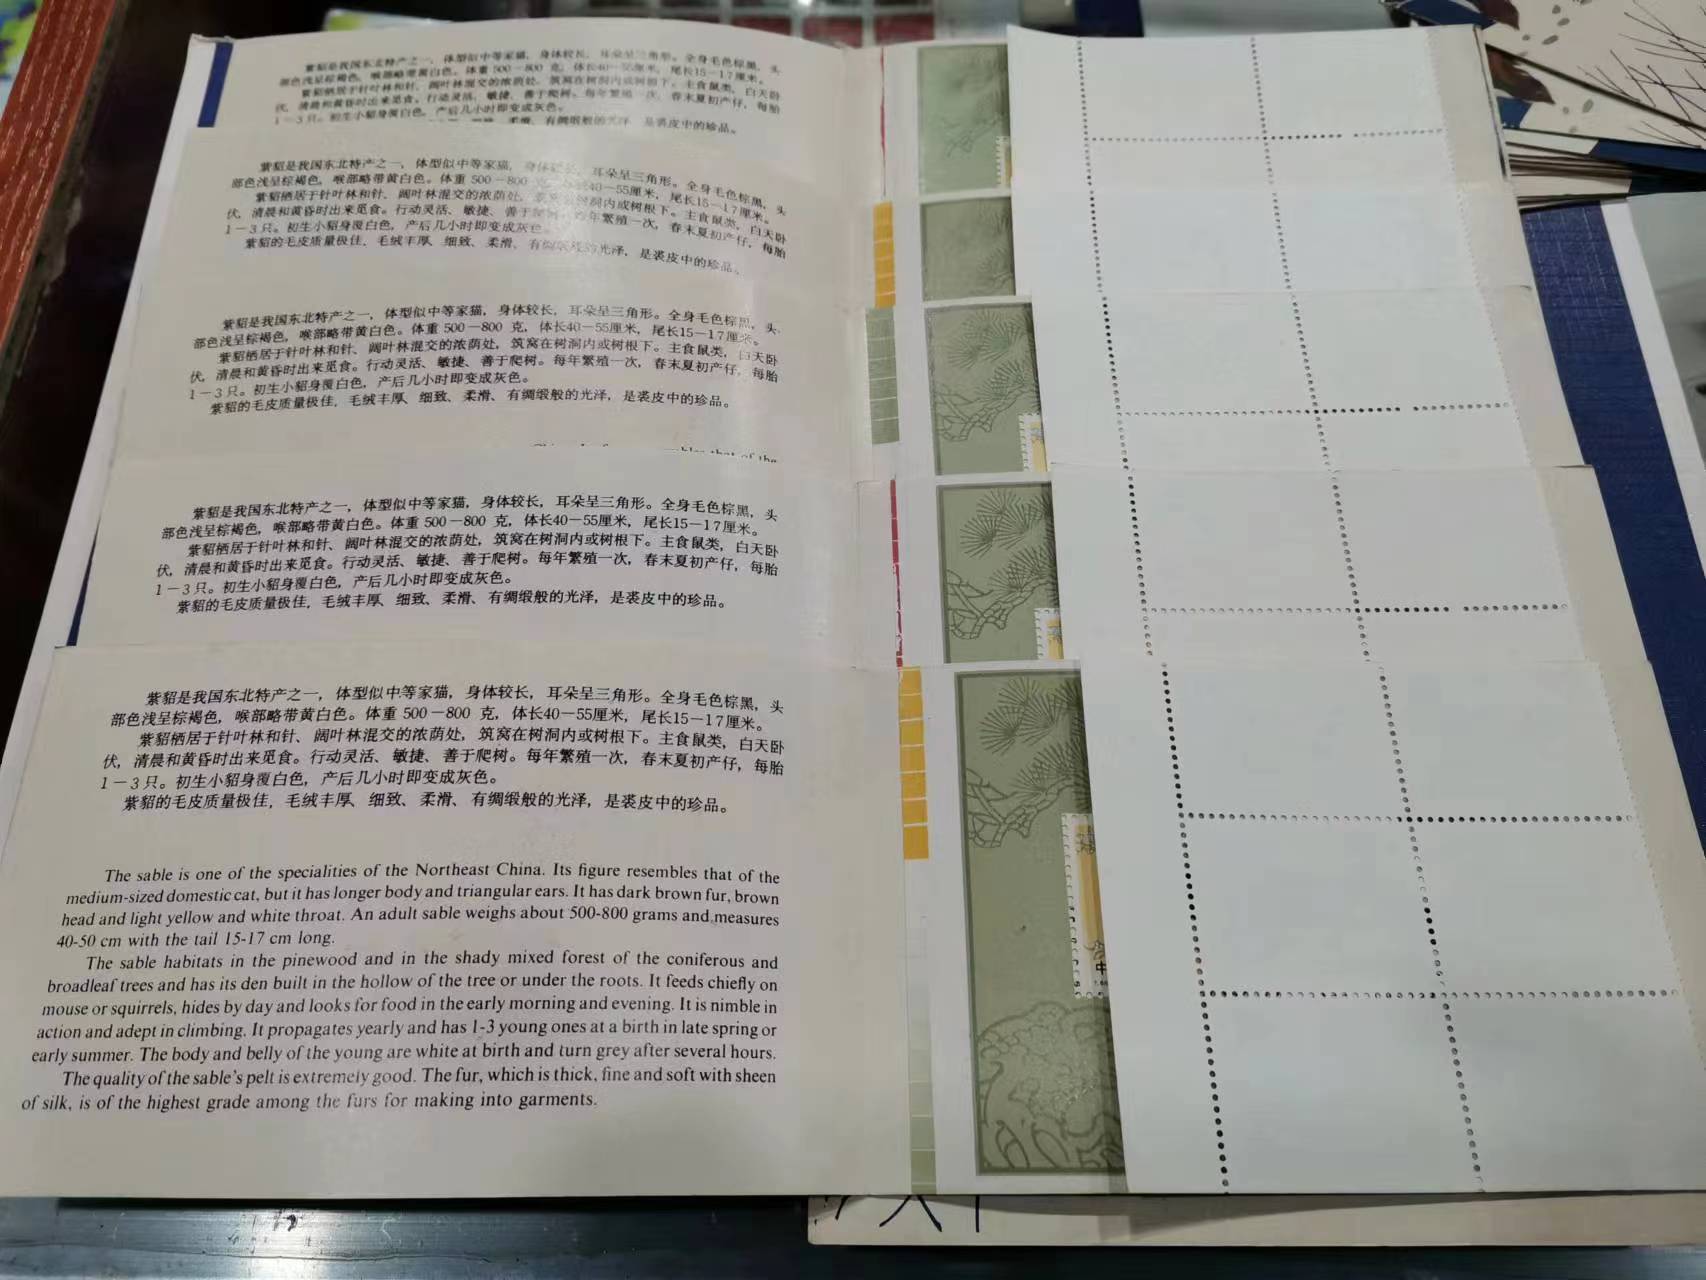 紫貂是我国东北特产之一，体型似中等家猫，身体较长，耳朵呈三角形。全身毛色棕黑，头
部色浅呈棕褐色，喉部略带黄白色。体重 500－800 克，体长40－55厘米，尾长15－17厘米。
紫貂栖居于针叶林和针、阔叶林混交的浓荫处，筑窝在树洞内或树根下。主食鼠类，白天卧
伏，清晨和黄昏时出来觅食。行动灵活、敏捷、善于爬树。每年繁殖一次，春末夏初产仔，每胎
1－3只。初生小貂身覆白色，产后几小时即变成灰色。
柔滑、有绸缎般的光泽，是裘皮中的珍品。
紫貂是我国东北特产之一，体型似中等家猫，身体较长，耳朵呈三角形。全身毛色棕黑，头
部色浅呈棕褐色，喉部略带黄白色。体重 500－800 克，体长40－55厘米，尾长15－17厘米。
紫貂栖居于针叶林和针、阔叶林混交的浓荫处，筑窝在树洞内或树根下。主食鼠类，白天卧
伏，清晨和黄昏时出来觅食。行动灵活、敏捷、善于爬树。每年繁殖一次，春末夏初产仔，每胎
1－3只。初生小貂身覆白色，产后几小时即变成灰色。
紫貂的毛皮质量极佳，毛绒丰厚、细致、柔滑、有绸缎般的光泽，是裘皮中的珍品。
紫貂是我国东北特产之一，体型似中等家猫，身体较长，耳朵呈三角形。全身毛色棕黑，头
部色浅呈棕褐色，喉部略带黄白色。体重 500－800 克，体长40－55厘米，尾长15－17厘米。
紫貂栖居于针叶林和针、阔叶林混交的浓荫处，筑窝在树洞内或树根下。主食鼠类，白天卧
伏，清晨和黄昏时出来觅食。行动灵活、敏捷、善于爬树。每年繁殖一次，春末夏初产仔，每胎
1－3只。初生小貂身覆白色，产后几小时即变成灰色。
紫貂的毛皮质量极佳，毛绒丰厚、细致、柔滑、有绸缎般的光泽，是裘皮中的珍品。
that of the
紫貂是我国东北特产之一，体型似中等家猫，身体较长，耳朵呈三角形。全身毛色棕黑，头
部色浅呈棕褐色，喉部略带黄白色。体重 500－800 克，体长40－55厘米，尾长15－17厘米。
紫貂栖居于针叶林和针、阔叶林混交的浓荫处，筑窝在树洞内或树根下。主食鼠类，白天卧
伏，清晨和黄昏时出来觅食。行动灵活、敏捷、善于爬树。每年繁殖一次，春末夏初产仔，每胎
1－3只。初生小貂身覆白色，产后几小时即变成灰色。
紫貂的毛皮质量极佳，毛绒丰厚、细致、柔滑、有绸缎般的光泽，是裘皮中的珍品。
紫貂是我国东北特产之一，体型似中等家猫，身体较长，耳朵呈三角形。全身毛色棕黑，头
部色浅呈棕褐色，喉部略带黄白色。体重 500－800 克，体长40－55厘米，尾长15－17厘米。
紫貂栖居于针叶林和针、阔叶林混交的浓荫处，筑窝在树洞内或树根下。主食鼠类，白天卧
伏，清晨和黄昏时出来觅食。行动灵活、敏捷、善于爬树。每年繁殖一次，春末夏初产仔，每胎
1－3只。初生小貂身覆白色，产后几小时即变成灰色。
紫貂的毛皮质量极佳，毛绒丰厚、细致、柔滑、有绸缎般的光泽，是裘皮中的珍品。
The sable is one of the specialities of the Northeast China. Its figure resembles that of the
medium-sized domestic cat, but it has longer body and triangular ears. It has dark brown fur, brown
head and light yellow and white throat. An adult sable weighs about 500-800 grams and measures
40-50 cm with the tail 15-17 cm long.
The sable habitats in the pinewood and in the shady mixed forest of the coniferous and
broadleaf trees and has its den built in the hollow of the tree or under the roots. It feeds chiefly on
mouse or squirrels, hides by day and looks for food in the early morning and evening. It is nimble in
action and adept in climbing. It propagates yearly and has 1-3 young ones at a birth in late spring or
early summer. The body and belly of the young are white at birth and turn grey after several hours.
The quality of the sable's pelt is extremely good. The fur, which is thick, fine and soft with sheen
of silk, is of the highest grade among the furs for making into garments.
中